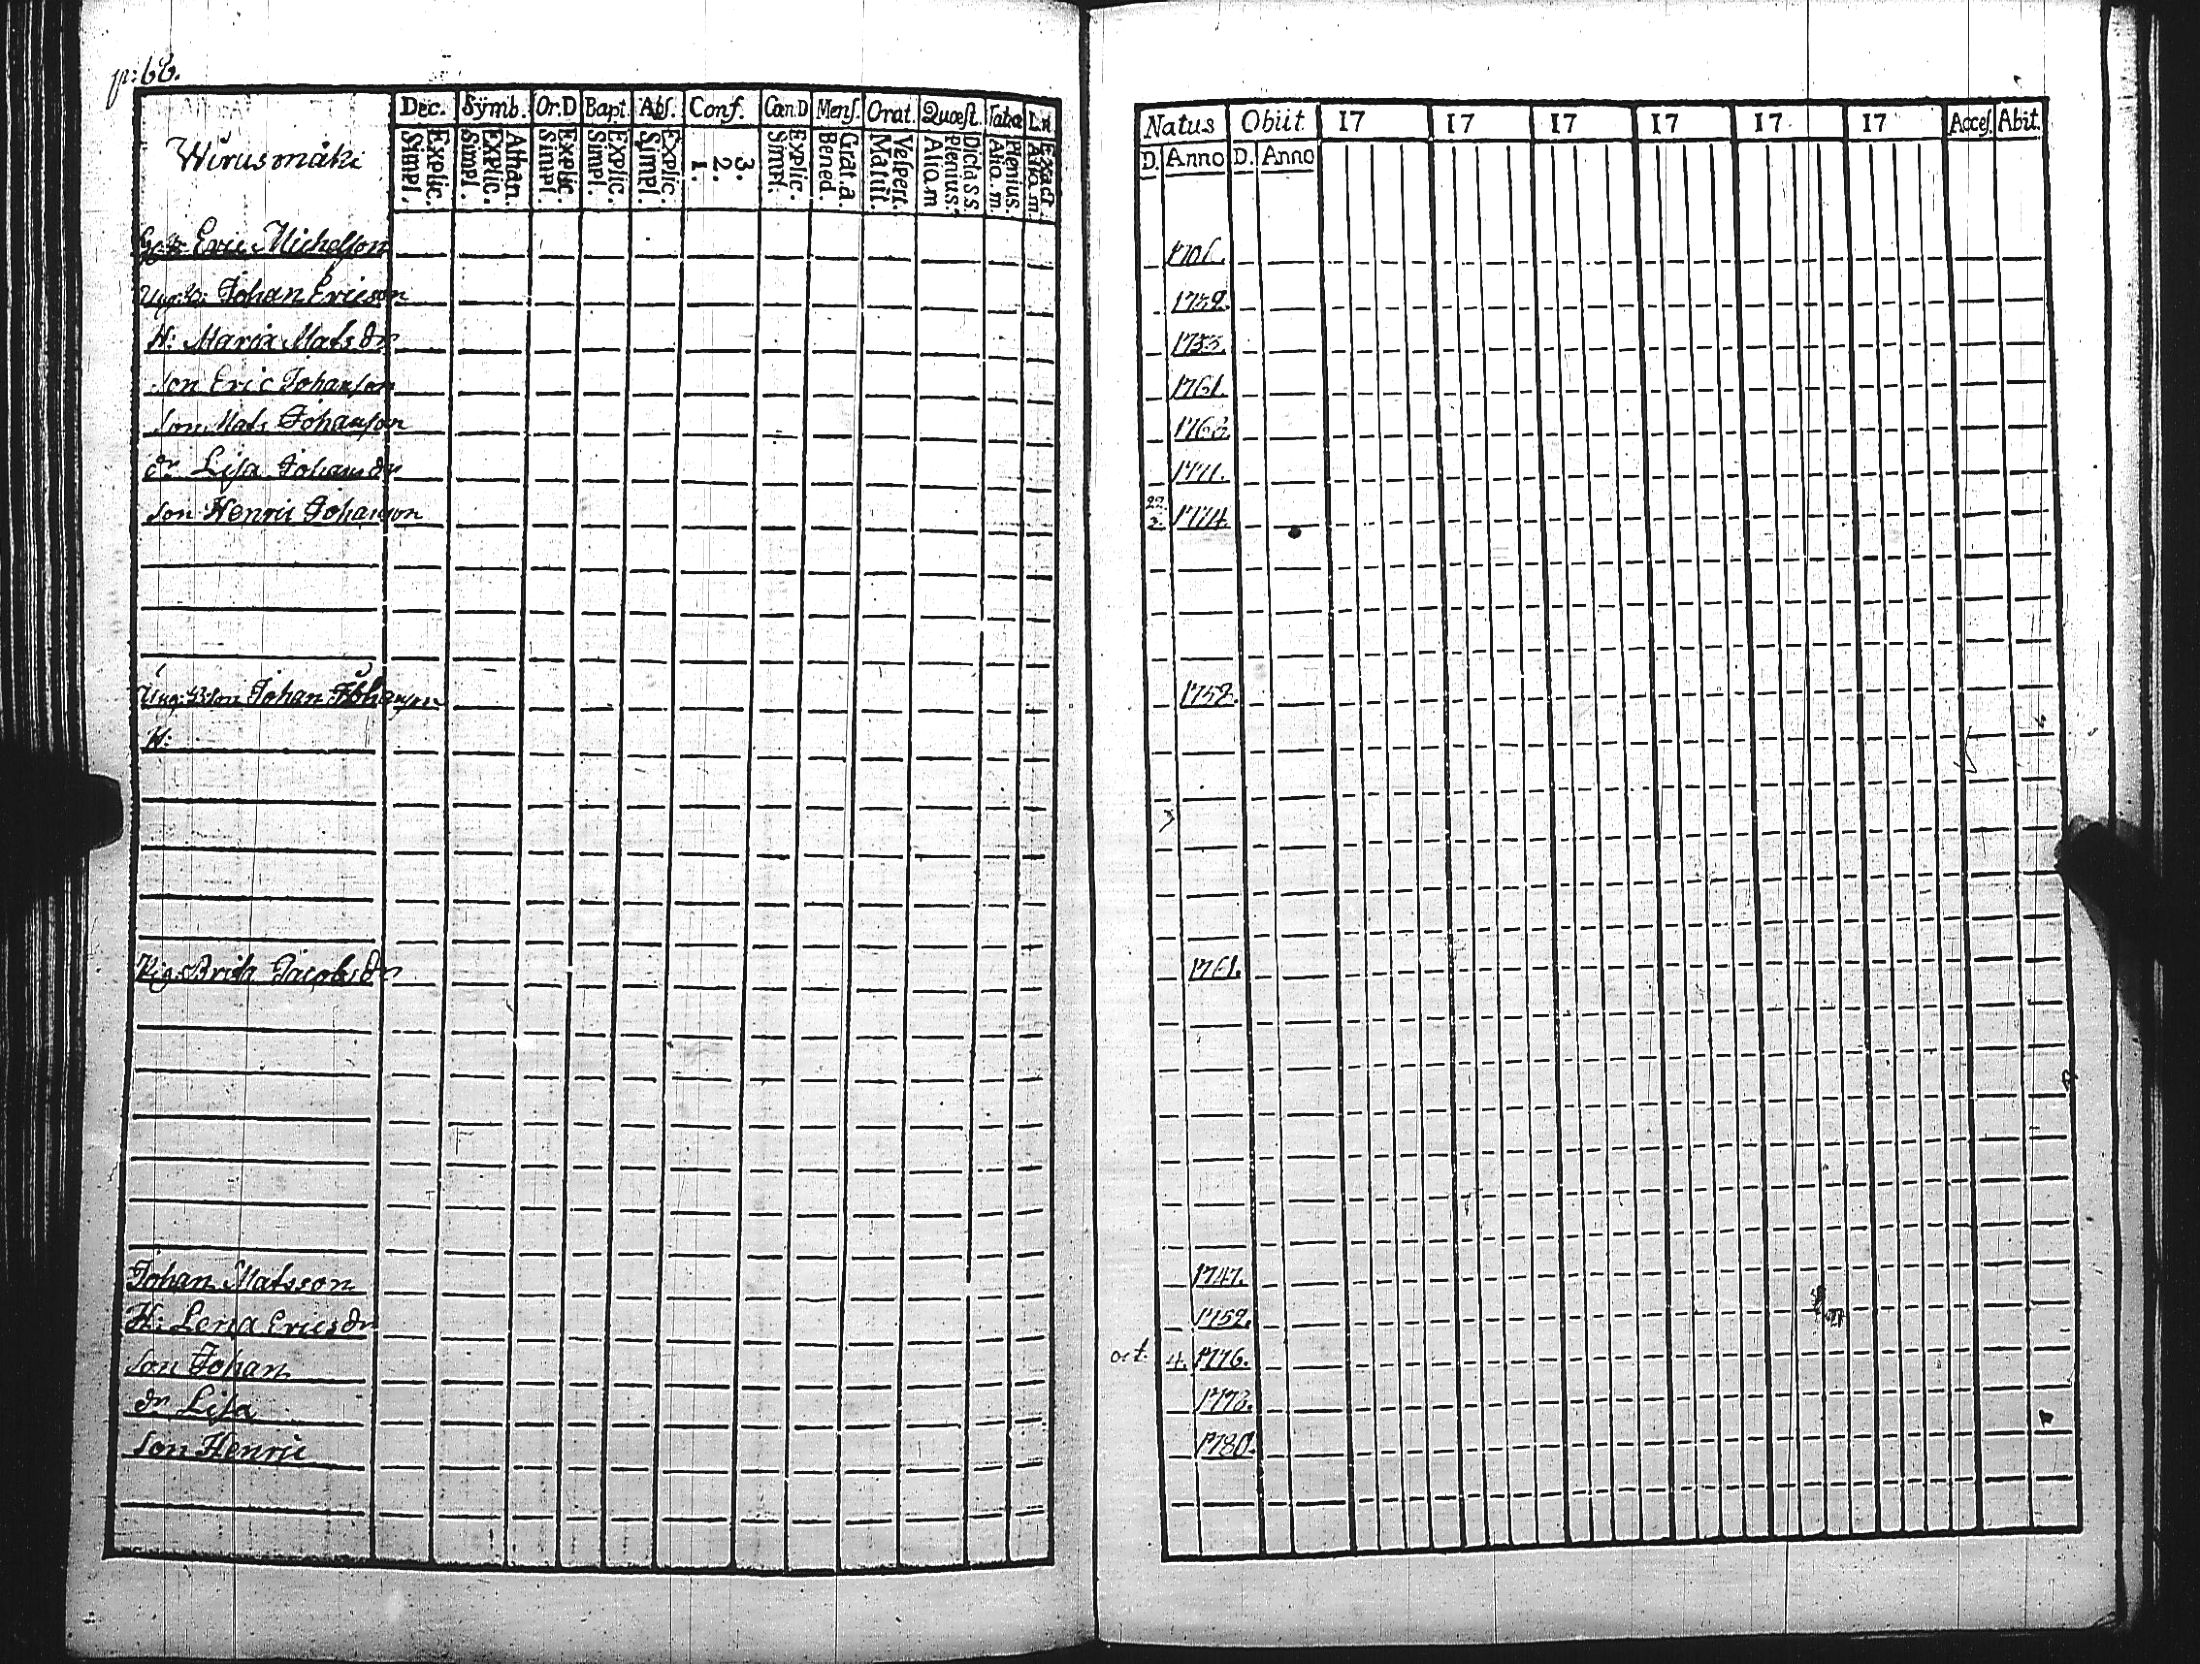 p: 66.
Dec. Symb. Or.D Bapt. Abs. Conf. Cœn.D Mens. Orat. Quæst. Tab.
Wirusmäki
Explic. Simpl. Athan. Explic. Simpl. Explic. Simpl. Explic. Simpl. Explic. Simpl. 3. 2. 1. Explic. Simpl. Grat. a. Bened. Vespert. Matut. Dicta S.S. Plenius. Aliq.m Plenius. Aliq.m Exact. Aliq.m
Natus Obiit 17 17 17 17 17 17 Acces. Abit.
D. Anno D. Anno
Eric Michelsson 1701.
Johan Ericson 1732.
H: Maria Mats dr 1733.
son Eric Johanson 1761.
son Mats Johanson 1763.
dr Lisa Johans dr 1771.
son Henric Johanson 22 2 1774.
Johan Johanson 1752.
H:
Pig. Brita Jacobs dr 1761.
Johan Matsson 1747.
H: Lena Erics dr 1752.
son Johan oct. 4. 1776.
dr Lisa 1778.
son Henric 1780.